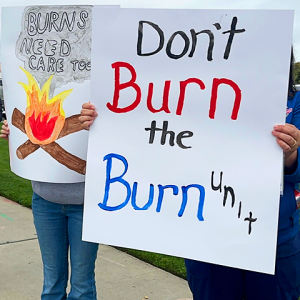 BURNS
NEED
CARE TOO
Don't
Burn
the
Burn Unit